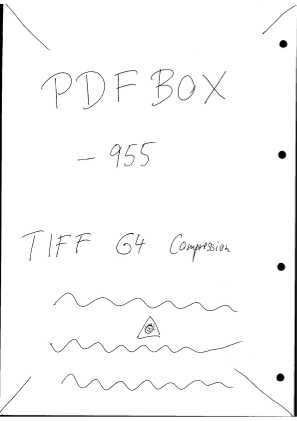 PDFBOX
- 955
TIFF G4 Compression